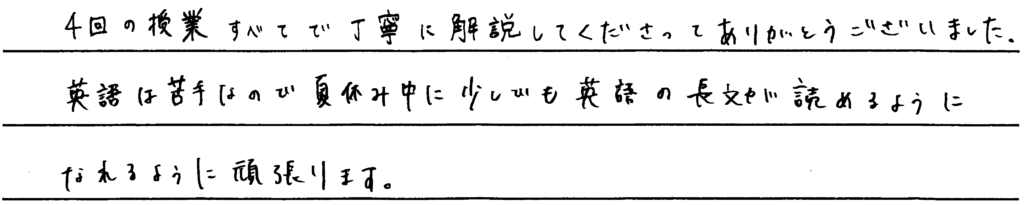 4回の授業すべてで丁寧に解説してくださってありがとうございました。
英語は苦手なので夏休み中に少しでも英語の長文が読めるように
なれるように頑張ります。